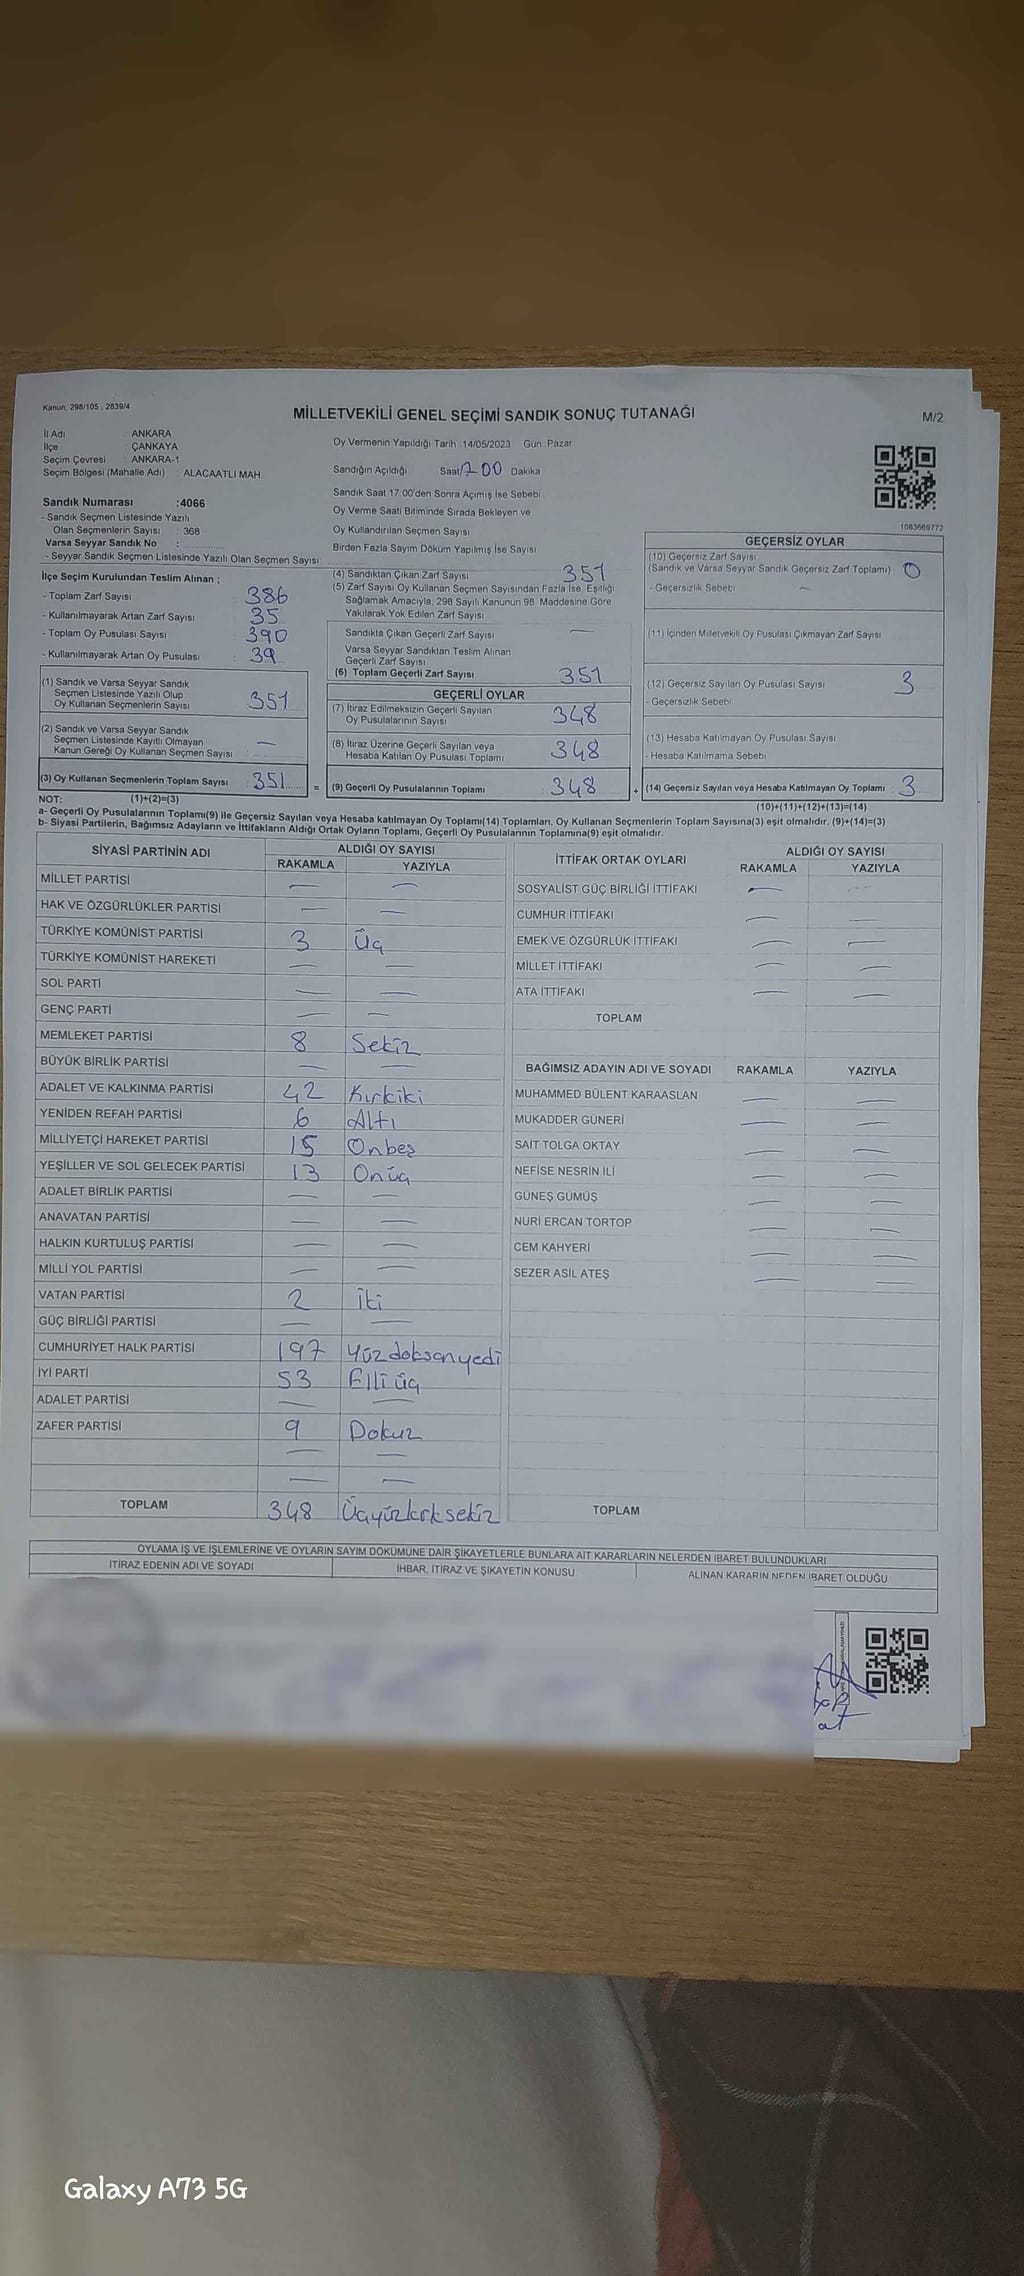 Kanun; 298/105 , 2839/4
MİLLETVEKİLİ GENEL SEÇİMİ SANDIK SONUÇ TUTANAĞI
M/2
İl Adı : ANKARA
İlçe : ÇANKAYA
Seçim Çevresi : ANKARA-1
Seçim Bölgesi (Mahalle Adı) : ALACAATLI MAH.
Sandık Numarası :4066
- Sandık Seçmen Listesinde Yazılı
Olan Seçmenlerin Sayısı : 368
Varsa Seyyar Sandık No :
- Seyyar Sandık Seçmen Listesinde Yazılı Olan Seçmen Sayısı
Oy Vermenin Yapıldığı Tarih 14/05/2023 Gün: Pazar
Sandığın Açıldığı Saat Dakika
Sandık Saat 17:00'den Sonra Açımış İse Sebebi
Oy Verme Saati Bitiminde Sırada Bekleyen ve
Oy Kullandırılan Seçmen Sayısı
Birden Fazla Sayım Döküm Yapılmış İse Sayısı
1083669772
İlçe Seçim Kurulundan Teslim Alınan ;
- Toplam Zarf Sayısı : 386
- Kullanılmayarak Artan Zarf Sayısı : 35
- Toplam Oy Pusulası Sayısı : 390
- Kullanılmayarak Artan Oy Pusulası : 39
(1) Sandık ve Varsa Seyyar Sandık
Seçmen Listesinde Yazılı Olup
Oy Kullanan Seçmenlerin Sayısı 351
(2) Sandık ve Varsa Seyyar Sandık
Seçmen Listesinde Kayıtlı Olmayan
Kanun Gereği Oy Kullanan Seçmen Sayısı —
(3) Oy Kullanan Seçmenlerin Toplam Sayısı 351 =
(4) Sandıktan Çıkan Zarf Sayısı 351
(5) Zarf Sayısı Oy Kullanan Seçmen Sayısından Fazla İse, Eşitliği
Sağlamak Amacıyla; 298 Sayılı Kanunun 98. Maddesine Göre
Yakılarak Yok Edilen Zarf Sayısı
Sandıkta Çıkan Geçerli Zarf Sayısı —
Varsa Seyyar Sandıktan Teslim Alınan
Geçerli Zarf Sayısı
(6) Toplam Geçerli Zarf Sayısı 351
GEÇERLİ OYLAR
(7) İtiraz Edilmeksizin Geçerli Sayılan
Oy Pusulalarının Sayısı 348
(8) İtiraz Üzerine Geçerli Sayılan veya
Hesaba Katılan Oy Pusulası Toplamı 348
(9) Geçerli Oy Pusulalarının Toplamı 348 +
GEÇERSİZ OYLAR
(10) Geçersiz Zarf Sayısı
(Sandık ve Varsa Seyyar Sandık Geçersiz Zarf Toplamı) 0
- Geçersizlik Sebebi —
(11) İçinden Milletvekili Oy Pusulası Çıkmayan Zarf Sayısı
(12) Geçersiz Sayılan Oy Pusulası Sayısı 3
- Geçersizlik Sebebi
(13) Hesaba Katılmayan Oy Pusulası Sayısı
- Hesaba Katılmama Sebebi
(14) Geçersiz Sayılan veya Hesaba Katılmayan Oy Toplamı 3
NOT: (1)+(2)=(3)
(10)+(11)+(12)+(13)=(14)
a- Geçerli Oy Pusulalarının Toplamı(9) ile Geçersiz Sayılan veya Hesaba katılmayan Oy Toplamı(14) Toplamları, Oy Kullanan Seçmenlerin Toplam Sayısına(3) eşit olmalıdır. (9)+(14)=(3)
b- Siyasi Partilerin, Bağımsız Adayların ve İttifakların Aldığı Ortak Oyların Toplamı, Geçerli Oy Pusulalarının Toplamına(9) eşit olmalıdır.
SİYASİ PARTİNİN ADI ALDIĞI OY SAYISI
RAKAMLA YAZIYLA
MİLLET PARTİSİ — —
HAK VE ÖZGÜRLÜKLER PARTİSİ — —
TÜRKİYE KOMÜNİST PARTİSİ 3 Üç
TÜRKİYE KOMÜNİST HAREKETİ — —
SOL PARTİ — —
GENÇ PARTİ — —
MEMLEKET PARTİSİ 8 Sekiz
BÜYÜK BİRLİK PARTİSİ — —
ADALET VE KALKINMA PARTİSİ 42 Kırkiki
YENİDEN REFAH PARTİSİ 6 Altı
MİLLİYETÇİ HAREKET PARTİSİ 15 Onbeş
YEŞİLLER VE SOL GELECEK PARTİSİ 13 Onüç
ADALET BİRLİK PARTİSİ — —
ANAVATAN PARTİSİ — —
HALKIN KURTULUŞ PARTİSİ — —
MİLLİ YOL PARTİSİ — —
VATAN PARTİSİ 2 İki
GÜÇ BİRLİĞİ PARTİSİ — —
CUMHURİYET HALK PARTİSİ 197 Yüzdoksanyedi
İYİ PARTİ 53 Elliüç
ADALET PARTİSİ — —
ZAFER PARTİSİ 9 Dokuz
— —
— —
TOPLAM 348 Üçyüzkırksekiz
İTTİFAK ORTAK OYLARI ALDIĞI OY SAYISI
RAKAMLA YAZIYLA
SOSYALİST GÜÇ BİRLİĞİ İTTİFAKI —
CUMHUR İTTİFAKI — —
EMEK VE ÖZGÜRLÜK İTTİFAKI — —
MİLLET İTTİFAKI — —
ATA İTTİFAKI — —
TOPLAM
BAĞIMSIZ ADAYIN ADI VE SOYADI RAKAMLA YAZIYLA
MUHAMMED BÜLENT KARAASLAN — —
MUKADDER GÜNERİ — —
SAİT TOLGA OKTAY — —
NEFİSE NESRİN İLİ — —
GÜNEŞ GÜMÜŞ — —
NURİ ERCAN TORTOP — —
CEM KAHYERİ — —
SEZER ASİL ATEŞ — —
TOPLAM
OYLAMA İŞ VE İŞLEMLERİNE VE OYLARIN SAYIM DÖKÜMÜNE DAİR ŞİKAYETLERLE BUNLARA AİT KARARLARIN NELERDEN İBARET BULUNDUKLARI
İTİRAZ EDENİN ADI VE SOYADI İHBAR, İTİRAZ VE ŞİKAYETİN KONUSU ALINAN KARARIN NEDEN İBARET OLDUĞU
Galaxy A73 5G